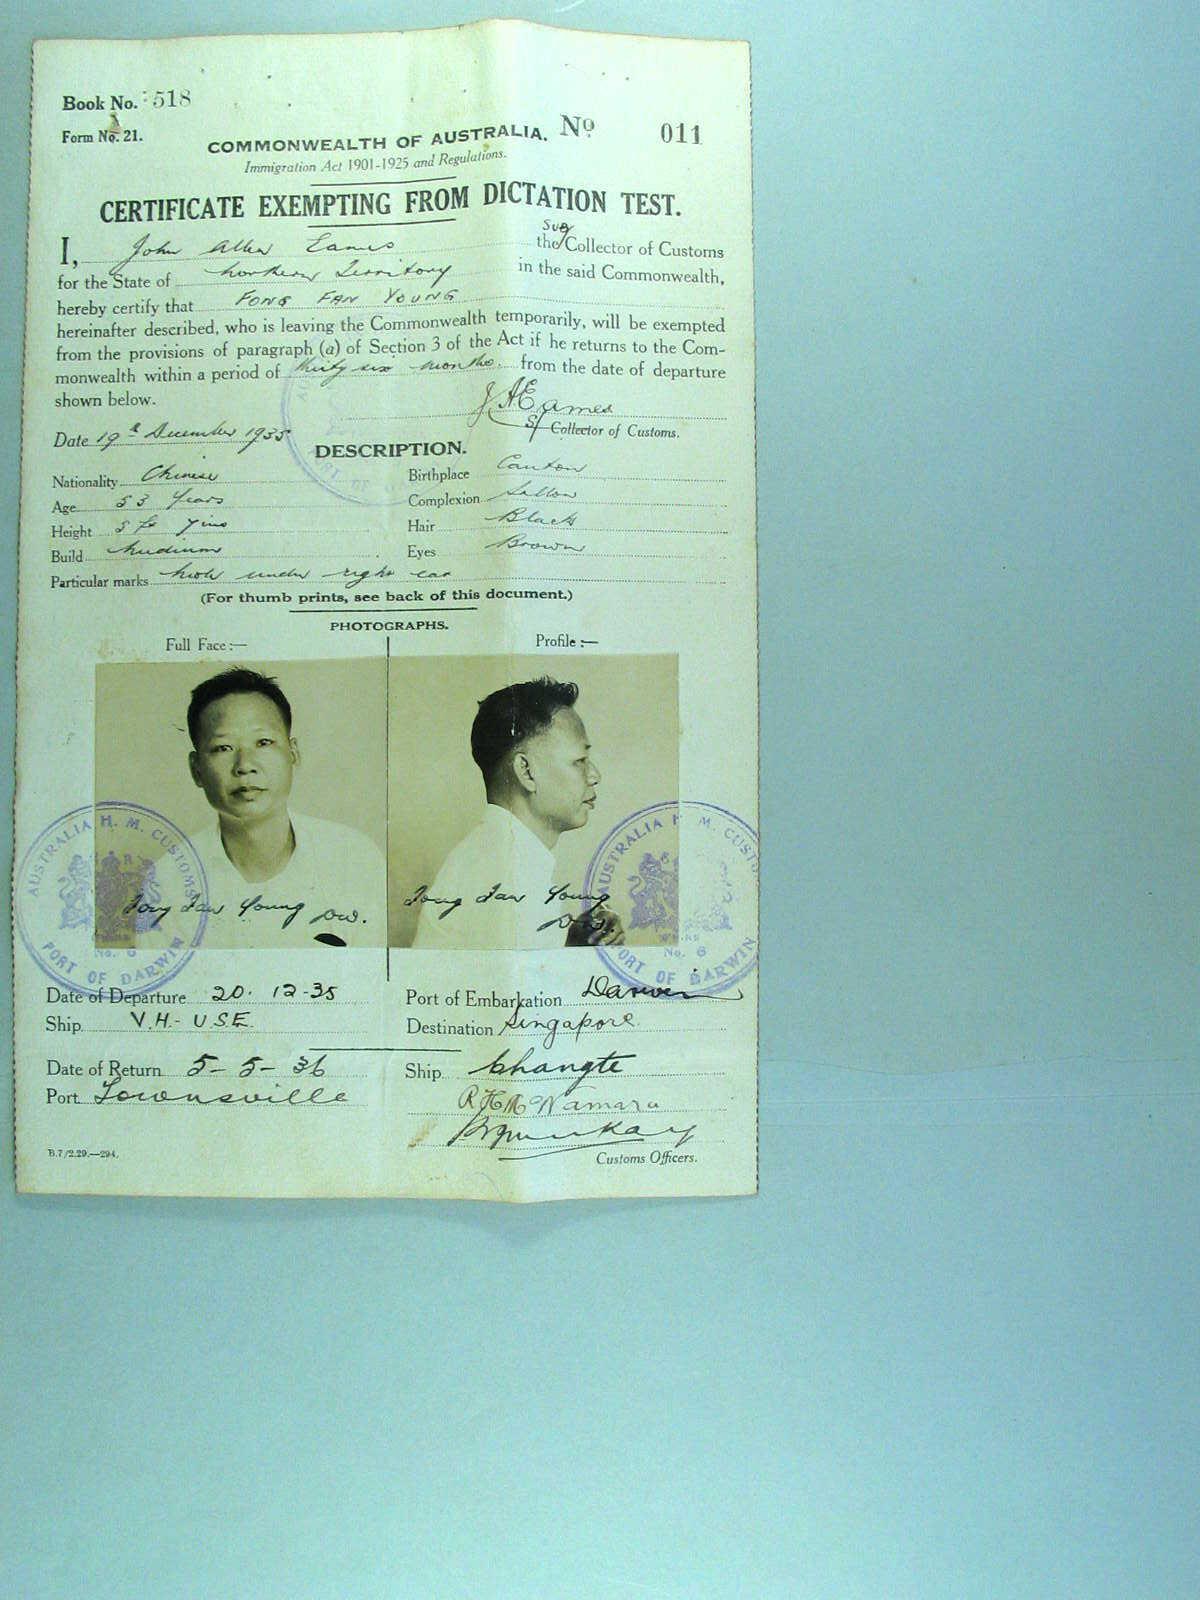 Book No. 518
Form No. 21.
COMMONWEALTH OF AUSTRALIA. No 011
Immigration Act 1901-1925 and Regulations.
CERTIFICATE EXEMPTING FROM DICTATION TEST.
I, John Allen Eames the Sub Collector of Customs
for the State of Northern Territory in the said Commonwealth,
hereby certify that FONG FAN YOUNG
hereinafter described, who is leaving the Commonwealth temporarily, will be exempted
from the provisions of paragraph (a) of Section 3 of the Act if he returns to the Com-
monwealth within a period of thirty six months. from the date of departure
shown below.
J A Eames
S/ Collector of Customs.
Date 19th December 1935
DESCRIPTION.
Nationality Chinese Birthplace Canton
Age 53 Years Complexion Sallow
Height 5 ft 7 ins Hair Black
Build Medium Eyes Brown
Particular marks Mole under right ear
(For thumb prints, see back of this document.)
PHOTOGRAPHS.
Full Face:— Profile:—
AUSTRALIA H. M. CUSTOMS No. 6 PORT OF DARWIN
Fong Fan Young
Fong Fan Young
AUSTRALIA H. M. CUSTO No. 6 PORT OF DARWIN
Date of Departure 20. 12-35 Port of Embarkation Darwin
Ship V.H.- U.S.E. Destination Singapore
Date of Return 5-5-36 Ship Changte
Port Townsville R H McNamara
Customs Officers.
B.7/2.29.—294.